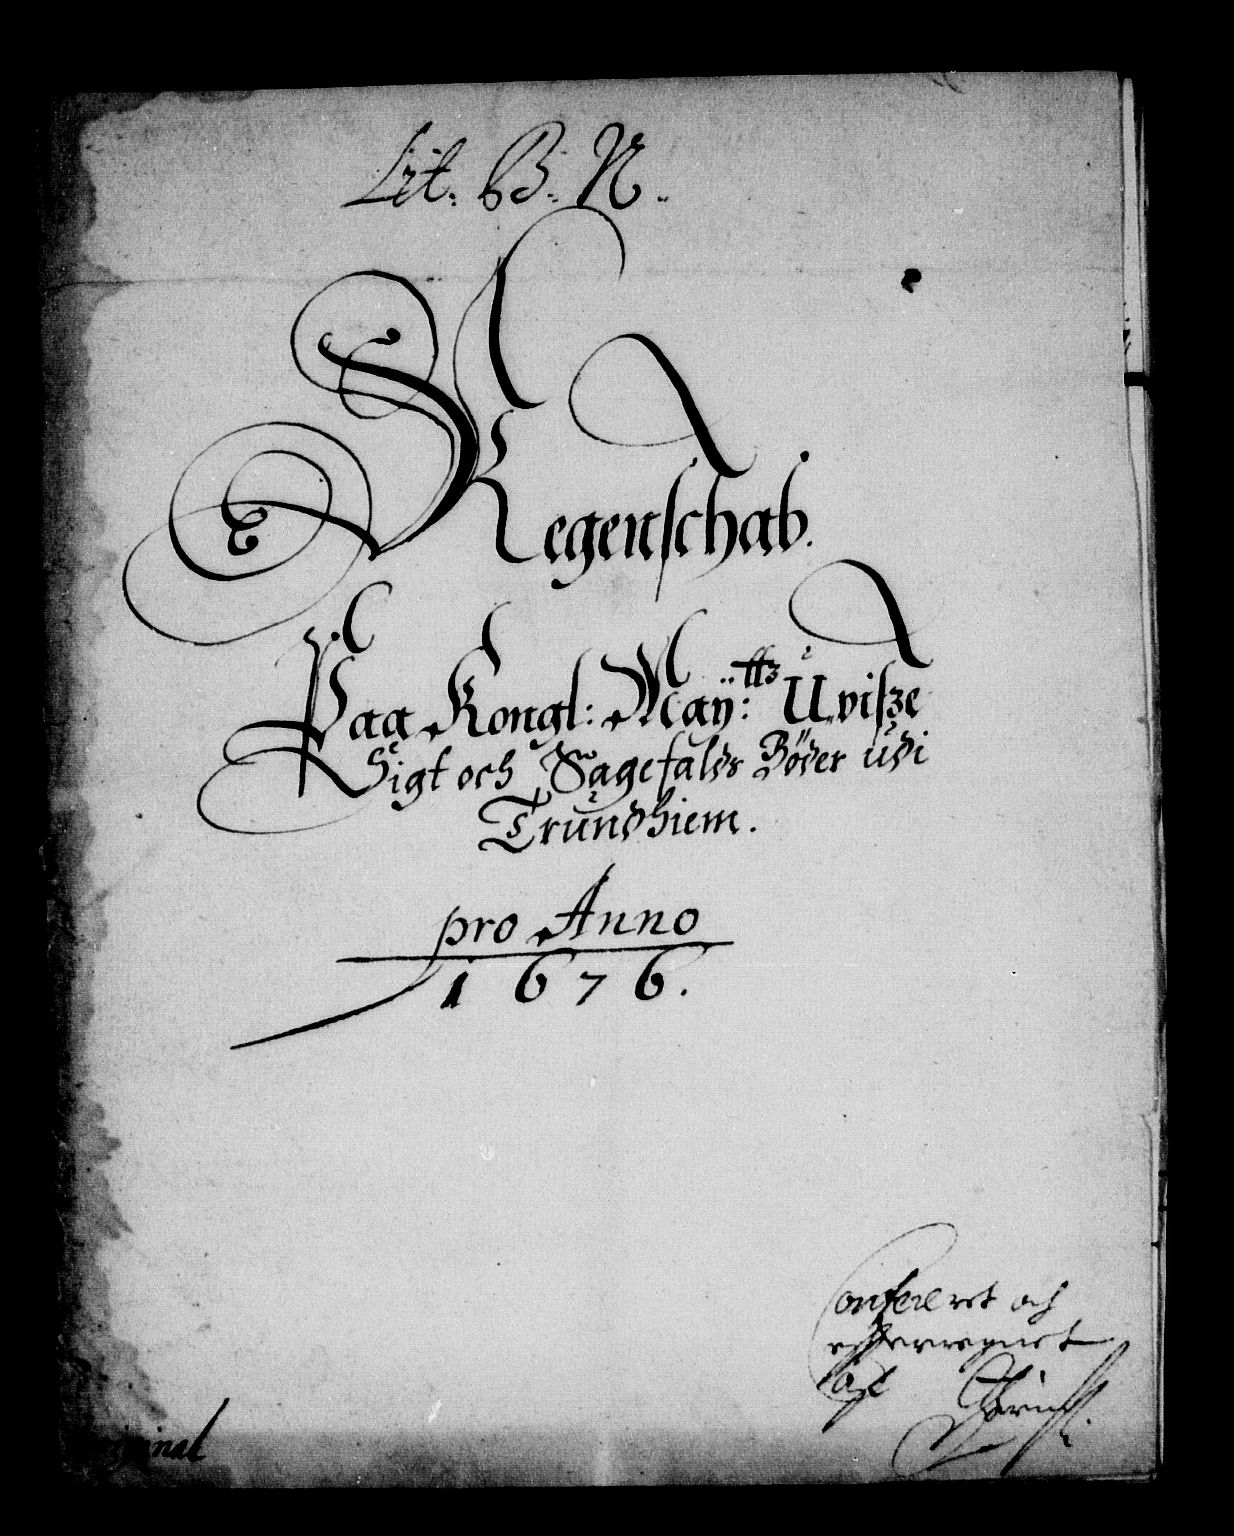 Lit. B: N.
Regenschab.
Paa Kongl: Maÿ:ttz Uvisze
Sigt och Sagefalds Böder udi
Trundhiem.
pro Anno
1676.
Confereret och
efterregnet
Original